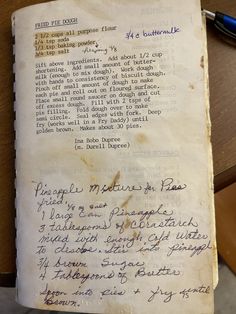 FRIED PIE DOUGH
2 1/2 cups all purpose flour
1/4 tsp soda
1/3 tsp baking powder,
3/4 tsp salt
3/4 c buttermilk
Sift above ingredients. Add about 1/2 cup
shortening. Add small amount of butter-
milk (enough to mix dough). Work dough
with hands to consistency of biscuit dough.
Pinch off small amount of dough to make
each pie and roll out on floured surface.
Place small round saucer on dough and cut
off excess dough. Fill with 2 tsps of
pie filling. Fold dough over to make
semi circle. Seal edges with fork. Deep
fry (works well in a Fry Daddy) until
golden brown. Makes about 30 pies.
Ina Bobo Dupree
(m. Durell Dupree)
Pineapple Mixture for Pies
fried.
1/8 of salt
1 large Can Pineapple
3 tablespoons of Cornstarch
mixed with enough cold water
to dissolve. Stir into pineapple
3/4 brown Sugar
4 Tablespoons of Butter
Spoon into pies & fry until
brown.